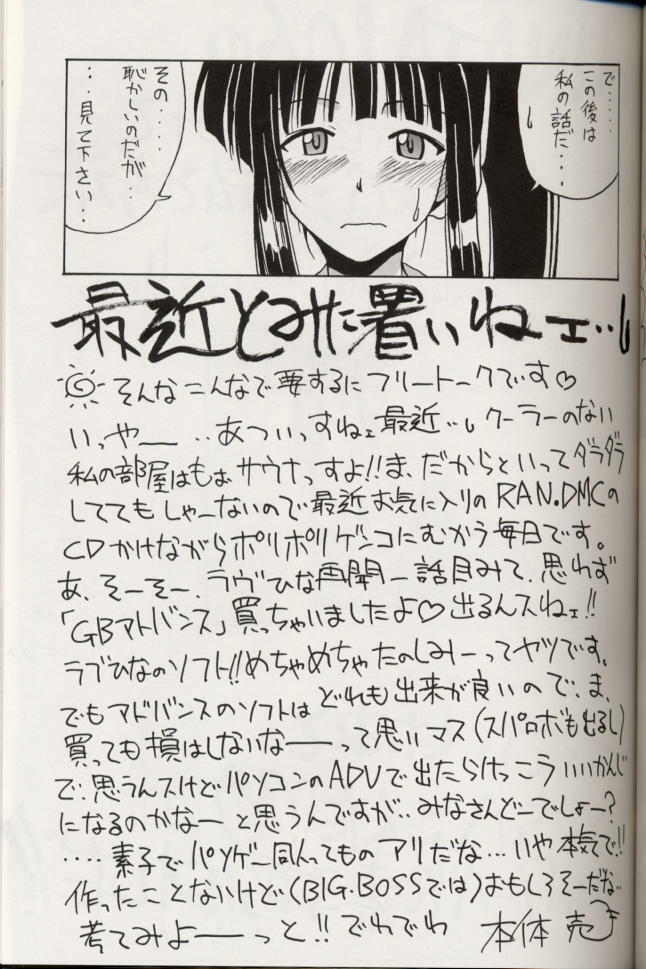 で‥‥
この後は
私の話だ・・・
その・・・・
恥かしいのだが・・
・・・見て下さい・・
最近とみに暑いねェ‥
そんなこんなで要するにフリートークです♡
いっやー‥あついっすねェ最近‥クーラーのない
私の部屋はもぉサウナっすよ!!ま、だからといってダラダラ
しててもしゃーないので最近お気に入りのRAN.DMCの
CDかけながらポリポリゲンコにむかう毎日です。
あ、そーそー、ラヴひな再開一話目みて、思わず
「GBアドバンス」買っちゃいましたよ♡出るんスねェ!!
ラブひなのソフト!!めちゃめちゃたのしみーってヤツです。
でもアドバンスのソフトはどれも出来が良いので、ま、
買っても損はしないなーって思いマス(スパロボも出るし)
で、思うんスけどパソコンのADVで出たらけっこういいかんじ
になるのかなーと思うんですが‥みなさんどーでしょー?
‥‥素子でパソゲー同人ってものアリだな…いや本気で!!
作ったことないけど(BIG.BOSSでは)おもしろそーだな
考てみよーっと!!でわでわ 本体 売